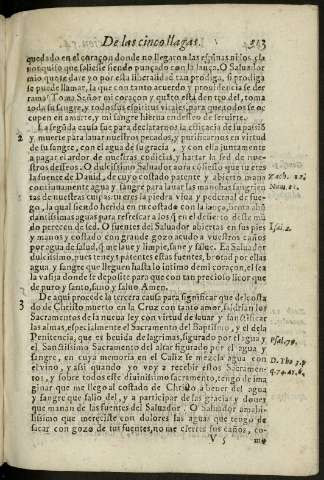 De las cinco llagas. 313
quedado en el coraçon donde no llegaron las espinas ni los clauos
quiso que saliesse siendo punçado con la lança. O Saluador
mio que te dare yo por esta liberalidad tan prodiga, si prodiga
se puede llamar, la que con tanto acuerdo y prouidencia se der
rama? Toma Señor mi coraçon y quãto està dentro del, toma
toda su sangre, y todos sus espiritus vitales, para que todos se o-
cupen en amarte, y mi sangre hierua en desseo de seruirte.
2 La segũda causa fue para declararnos la eficacia de su passiõ
y muerte para lauar nuestros pecados, y purificarnos en virtud
de su sangre, con el agua de su gracia, y con ella juntamente
apagar el ardor de nuestras codicias, y hartar la sed de nue-
stros desseos. O dulcissimo Saluador aora cõfiesso que tu eres
la fuente de Dauid, de cuyo costado patente y abierto mana Zach. 13.
continuamente agua y sangre para lauar las manchas sangriẽn Num. 21.
tas de nuestras culpas: tu eres la piedra viua y pedernal de fue-
go, la qual siendo herida en tu costado con la lança, brota abũ
dantissimas aguas para refrescar a los q̃ en el desierto deste mũ
do perecen de sed. O fuentes del Saluador abiertas en sus pies Isai. 12.
y manos y costado con grande gozo acudo a vuestros caños
por agua de salud, q̃ me laue y limpie, sane y salue. Ea Saluador
dulcissimo, pues teneys patentes estas fuentes, brotad por ellas
agua y sangre que lleguen hasta lo intimo de mi coraçon, el sea
la vasija donde se deposite para que con tan precioso licor que
de puro y santo, sano y saluo. Amen.
3 De aqui procede la tercera causa para significar que del costa
do de Christo muerto en la Cruz con tanto amor, saldrian los
Sacramentos de la nueua ley con virtud de lauar y santificar
las almas, especialmente el Sacramento del Baptismo, y el de la
Penitencia, que es beuida de lagrimas, figurado por el agua y Psal. 79.
el Santissimo Sacramento del altar figurado por el agua y
sangre, en cuya memoria en el Caliz se mezcla agua con D. Tho. 3. p.
el vino, y assi quando yo voy a recebir estos Sacramen- q. 74. ar. 6.
tos, y sobre todos este diuinissimo sacramẽto, tengo de ima
ginar que me llego al costado de Christo a beuer del agua
y sangre que salio del, y a participar de las gracias y dones
que manan de las fuentes del Saluador. O Saluador amabi-
lissimo que mereciste con dolores las aguas que tengo de
sacar con gozo de tus fuentes, no me cierres sus caños, co-
V 5 mo